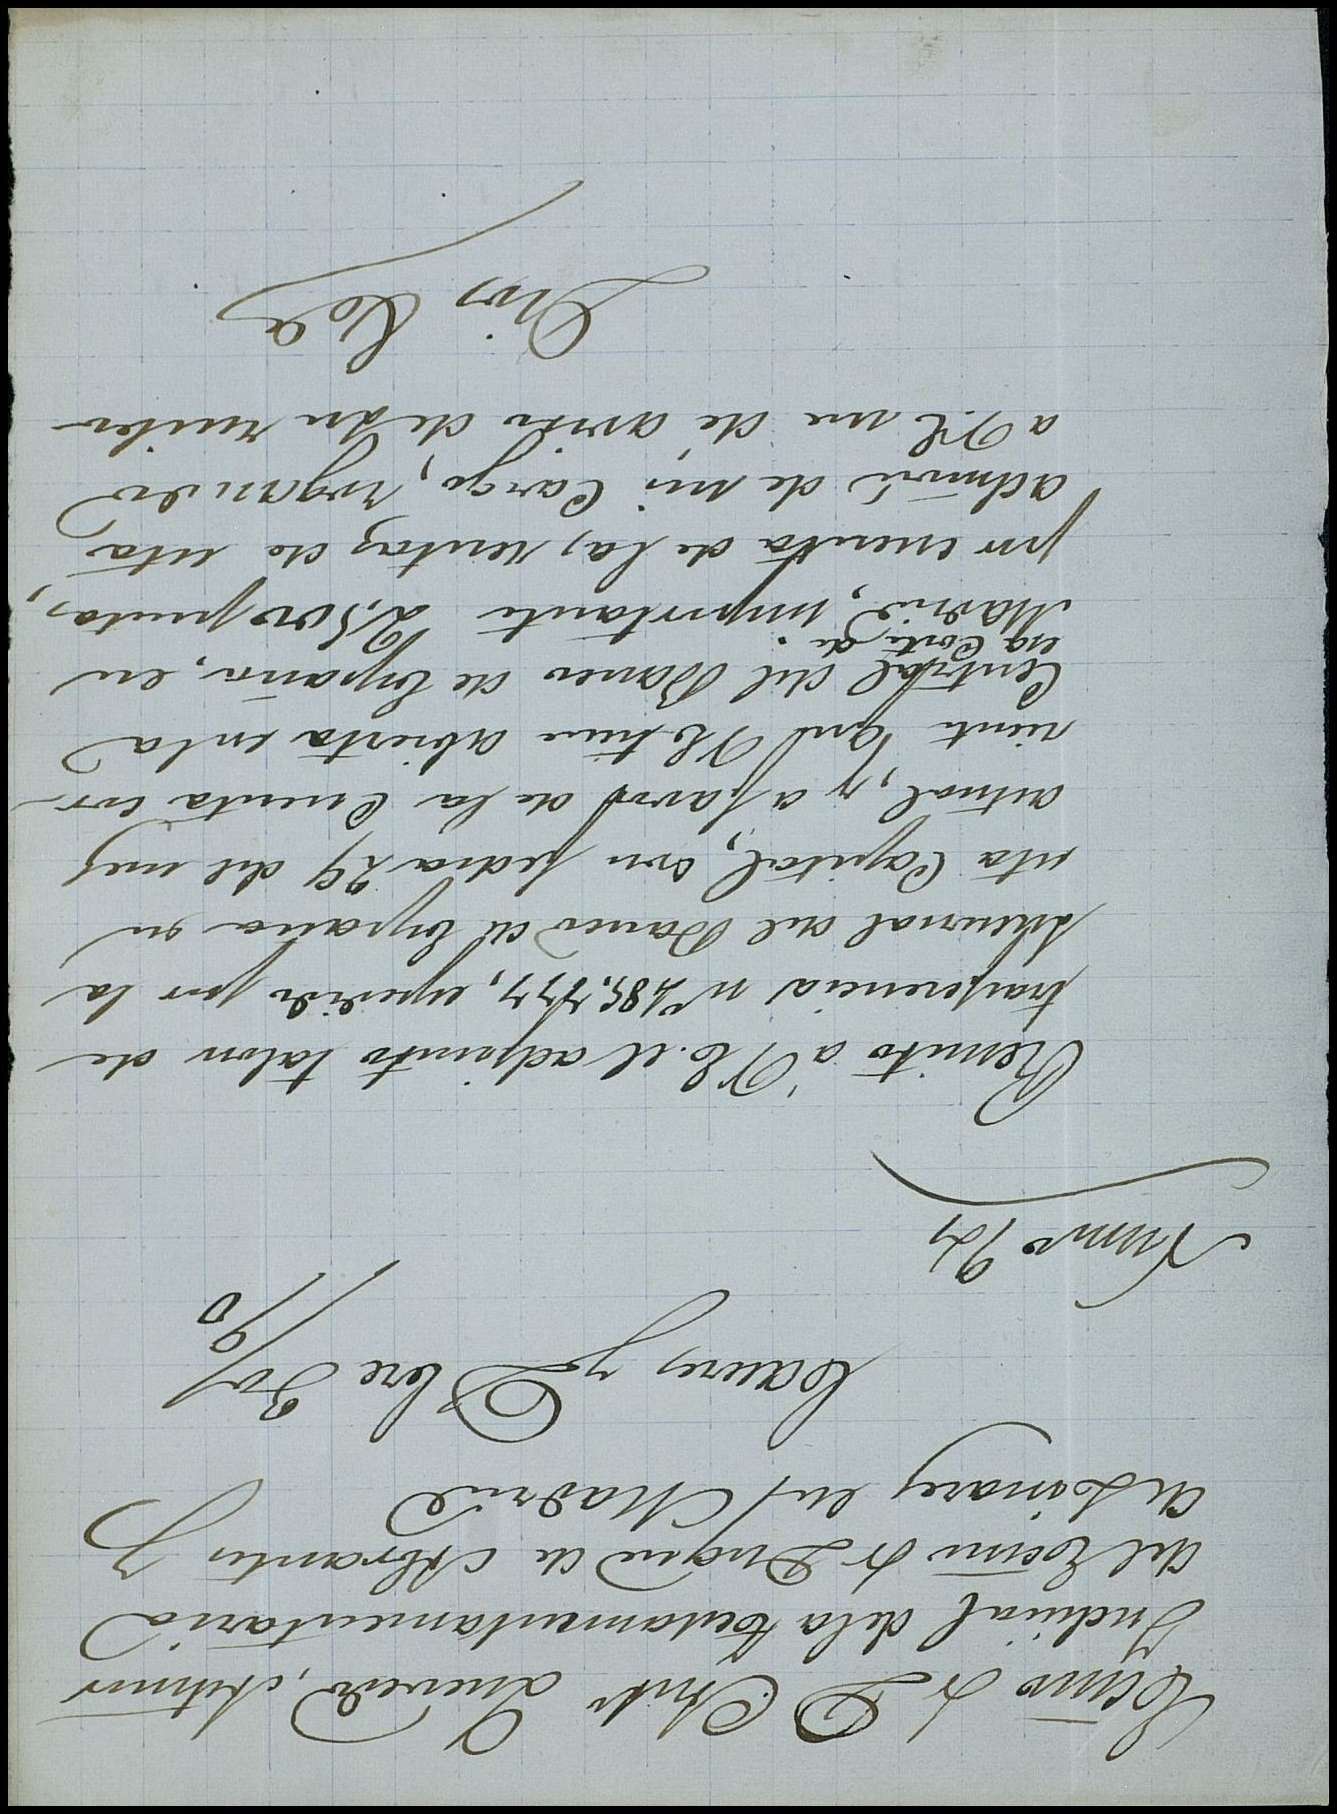 Excmo Sr D. Anto Quevedo, Admor
Judicial de la testamentaria
del Excmo Sr Duque de Abrantes y
de Linares en Madrid
Caceres y Dbre 30/90
Numo 94
Remito a V.E. el adjunto talon de
transferencia no 485,777, expedido por la
Sucursal del Banco de España en
esta Capital, con fecha 29 del mes
actual, y a favor de la Cuenta cor-
riente que V.E. tiene abierta en la
Central del Banco de España, en
esa Corte de
Madrid, importante 2,500 pesetas,
por cuenta de las rentas de esta
Admon de mi Cargo, rogando
a V.E. me dé aviso de su recibo
Dios &a